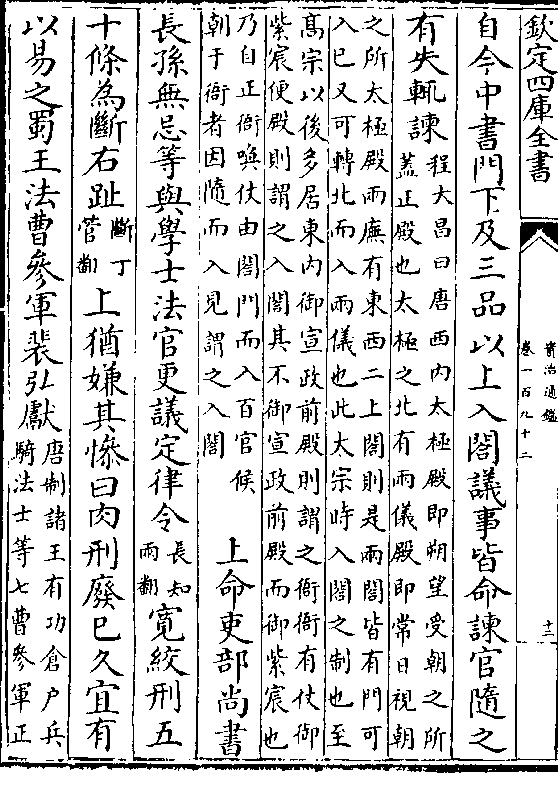 欽定四庫全書
資治通鑑
卷一百九十二
十二
自今中書門下及三品以上入閤議事皆命諫官隨之
有失輒諫程大昌曰唐西內太極殿即朔望受朝之所
蓋正殿也太極之北有兩儀殿即常日視朝
之所太極殿兩廡有東西二上閤則是兩閤皆有門可
入已又可轉北而入兩儀也此太宗時入閤之制也至
髙宗以後多居東内御宣政前殿則謂之衙衙有仗御
紫宸便殿則謂之入閤其不御宣政前殿而御紫宸也
乃自正衙喚仗由閤門而入百官候
朝于衙者因隨而入見謂之入閤
上命吏部尚書
長孫無忌等與學士法官更議定律令長知
兩翻
寛絞刑五
十條為斷右趾斷丁
管翻
上猶嫌其慘曰肉刑廢已久宜有
以易之蜀王法曹參軍裴弘獻唐制諸王有功倉户兵
騎法士等七曹參軍正